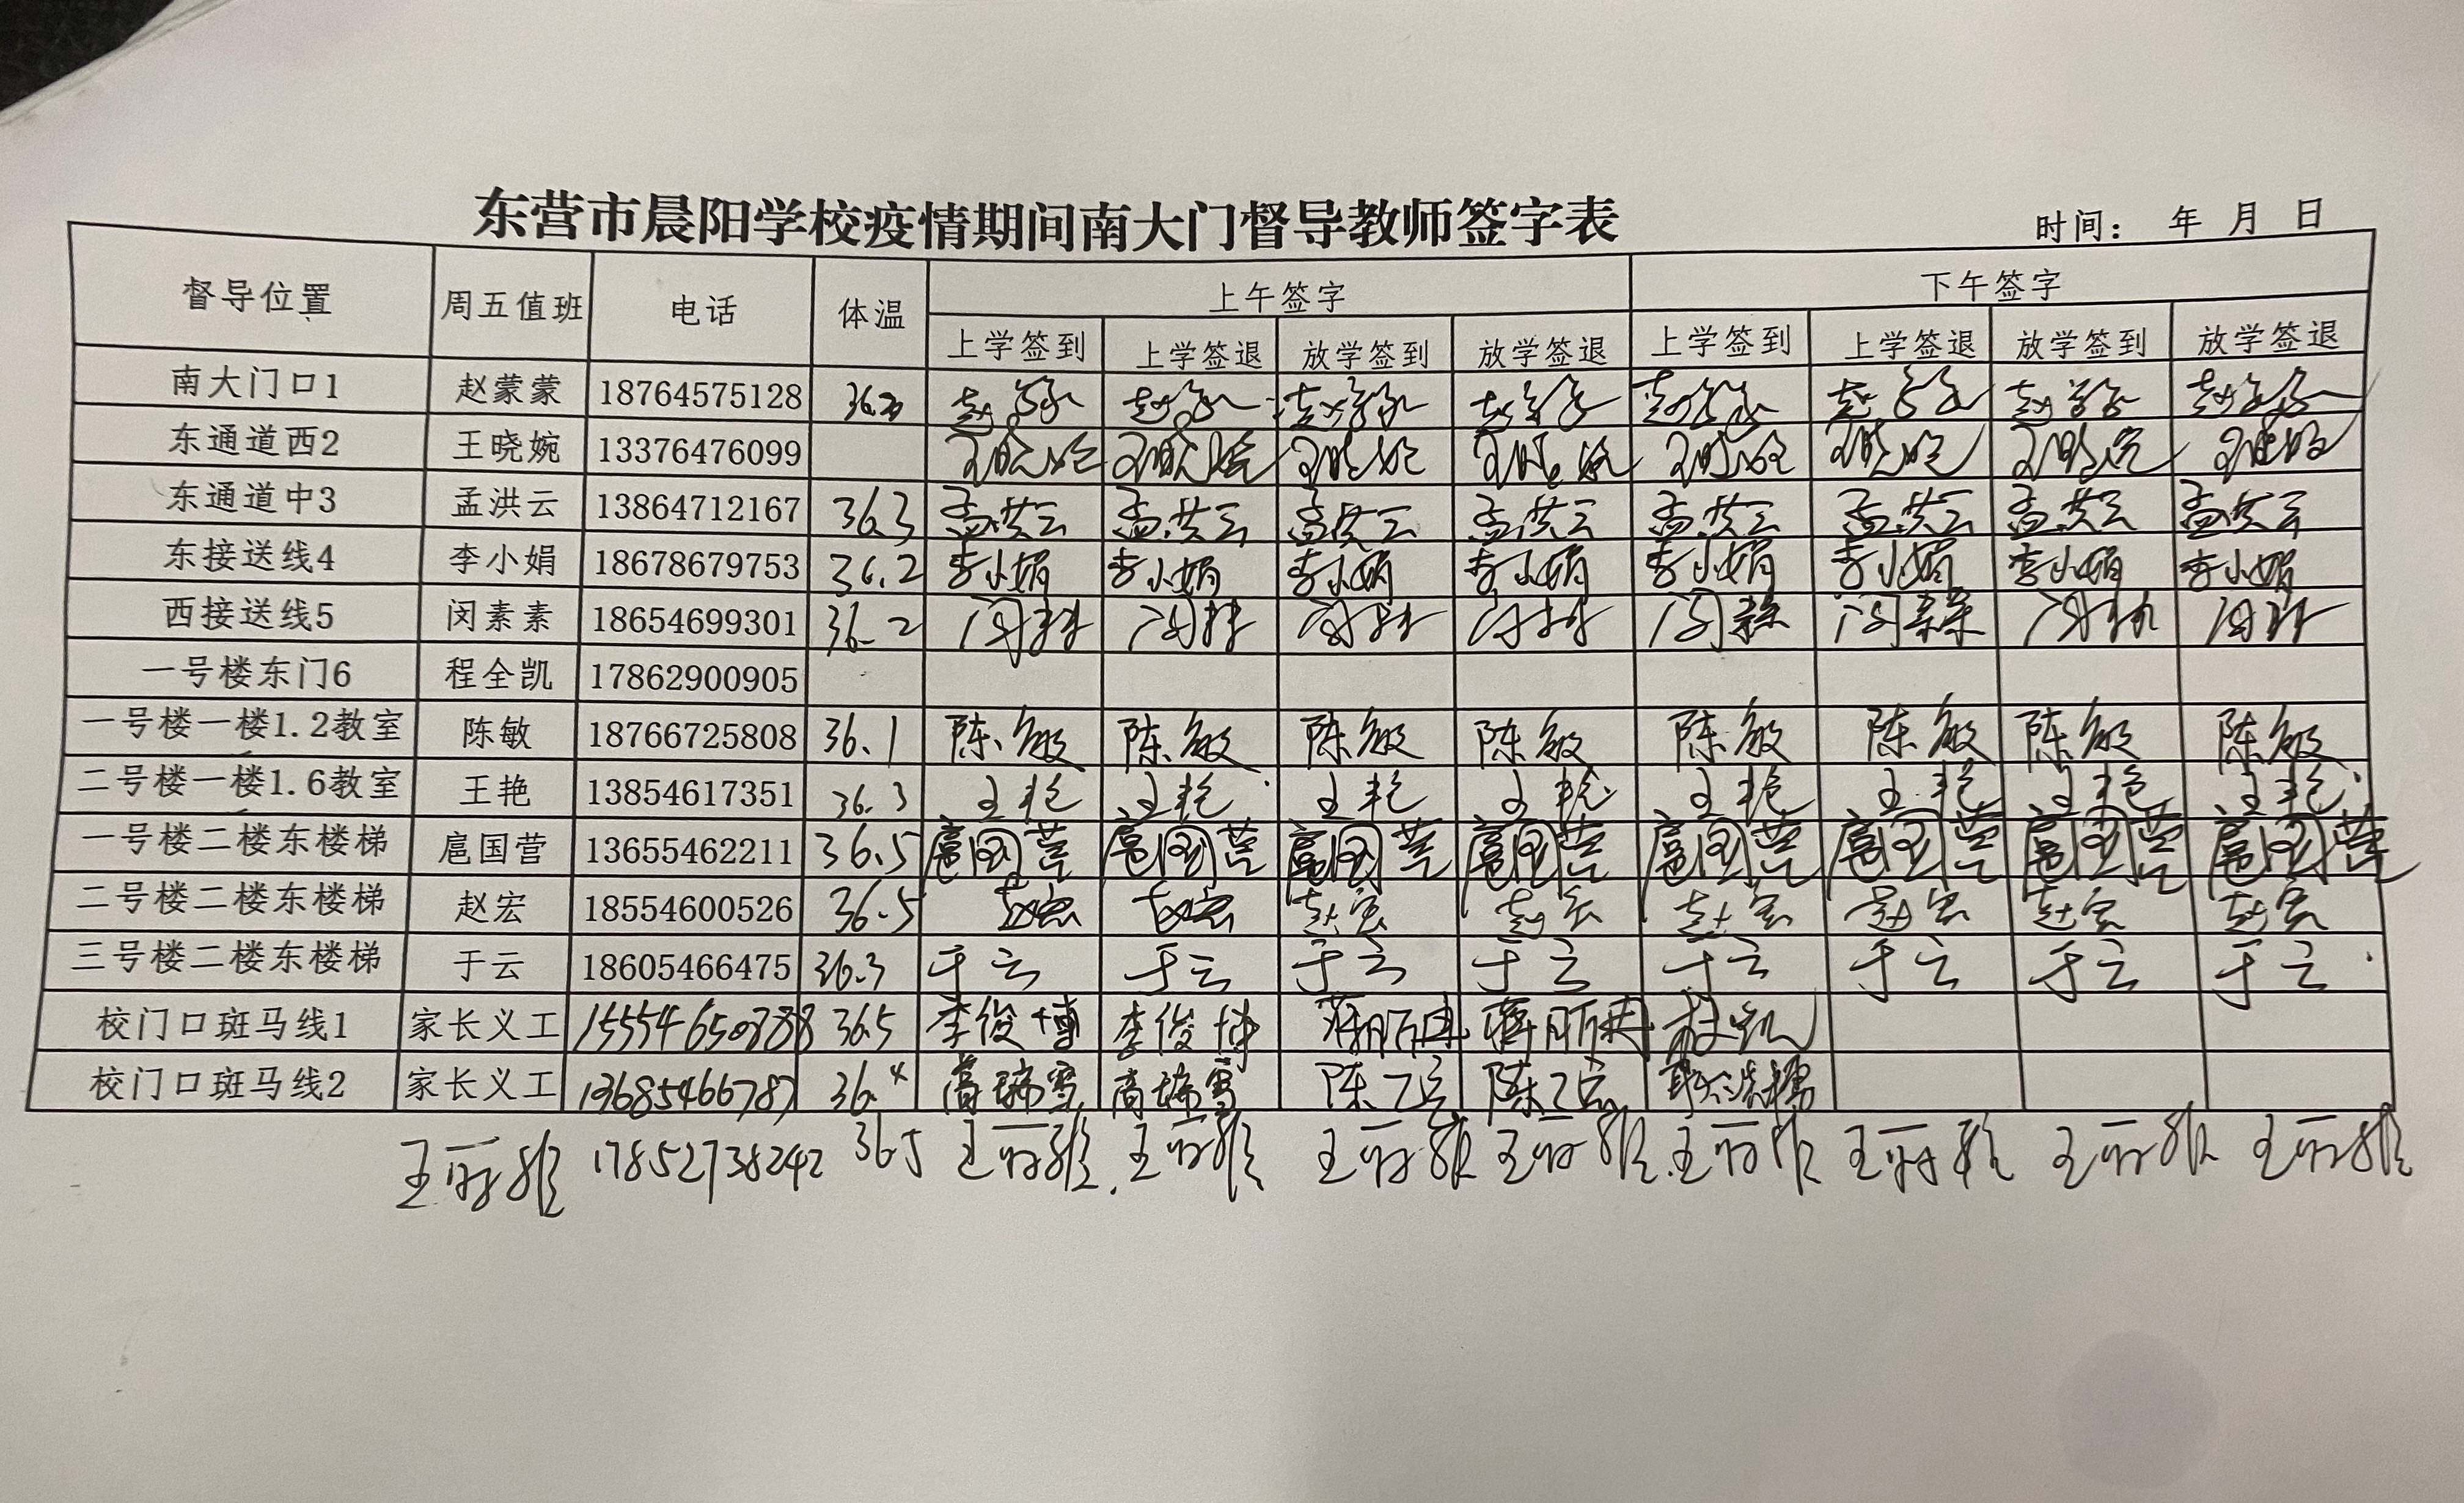 东营市晨阳学校疫情期间南大门督导教师签字表
时间： 年 月 日
督导位置 周五值班 电话 体温 上午签字 下午签字
上学签到 上学签退 放学签到 放学签退 上学签到 上学签退 放学签到 放学签退
南大门口1 赵蒙蒙 18764575128
东通道西2 王晓婉 13376476099 王晓婉 王晓婉 王晓婉 王晓婉 王晓婉 王晓婉 王晓婉 王晓婉
东通道中3 孟洪云 13864712167 36.3 孟洪云 孟洪云 孟洪云 孟洪云 孟洪云 孟洪云 孟洪云 孟洪云
东接送线4 李小娟 18678679753 36.2 李小娟 李小娟 李小娟 李小娟 李小娟 李小娟 李小娟 李小娟
西接送线5 闵素素 18654699301 36.2 闵素素 闵素素 闵素素 闵素素 闵素素 闵素素 闵素素 闵素素
一号楼东门6 程全凯 17862900905
一号楼一楼1.2教室 陈敏 18766725808 36.1 陈敏 陈敏 陈敏 陈敏 陈敏 陈敏 陈敏 陈敏
二号楼一楼1.6教室 王艳 13854617351 36.3 王艳 王艳 王艳 王艳 王艳 王艳 王艳 王艳
一号楼二楼东楼梯 扈国营 13655462211 36.5 扈国营 扈国营 扈国营 扈国营 扈国营 扈国营 扈国营 扈国营
二号楼二楼东楼梯 赵宏 18554600526 36.5 赵宏 赵宏 赵宏 赵宏 赵宏 赵宏 赵宏 赵宏
三号楼二楼东楼梯 于云 18605466475 36.3 于云 于云 于云 于云 于云 于云 于云 于云
校门口斑马线1 家长义工 36.5 李俊博 李俊博 杜凯
校门口斑马线2 家长义工 13685466787 36.4 高瑞雪 高瑞雪
17852738242 36.5